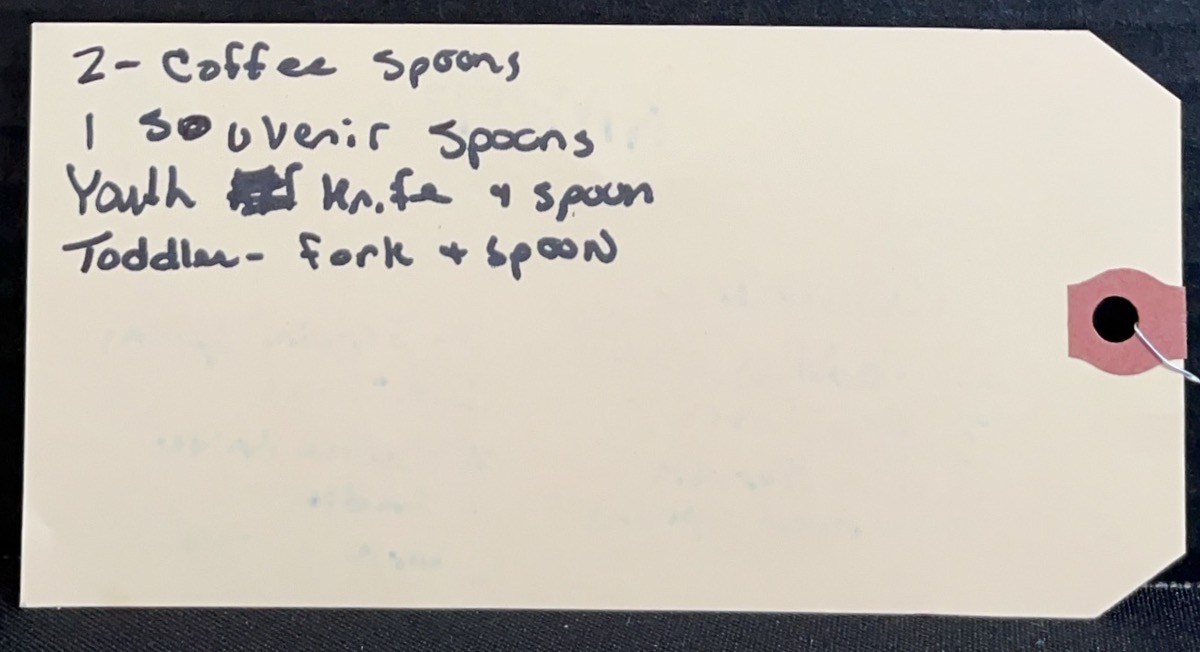 2- Coffee Spoons
1 Souvenir Spoons
Youth Knife + spoon
Toddler- fork + spooN